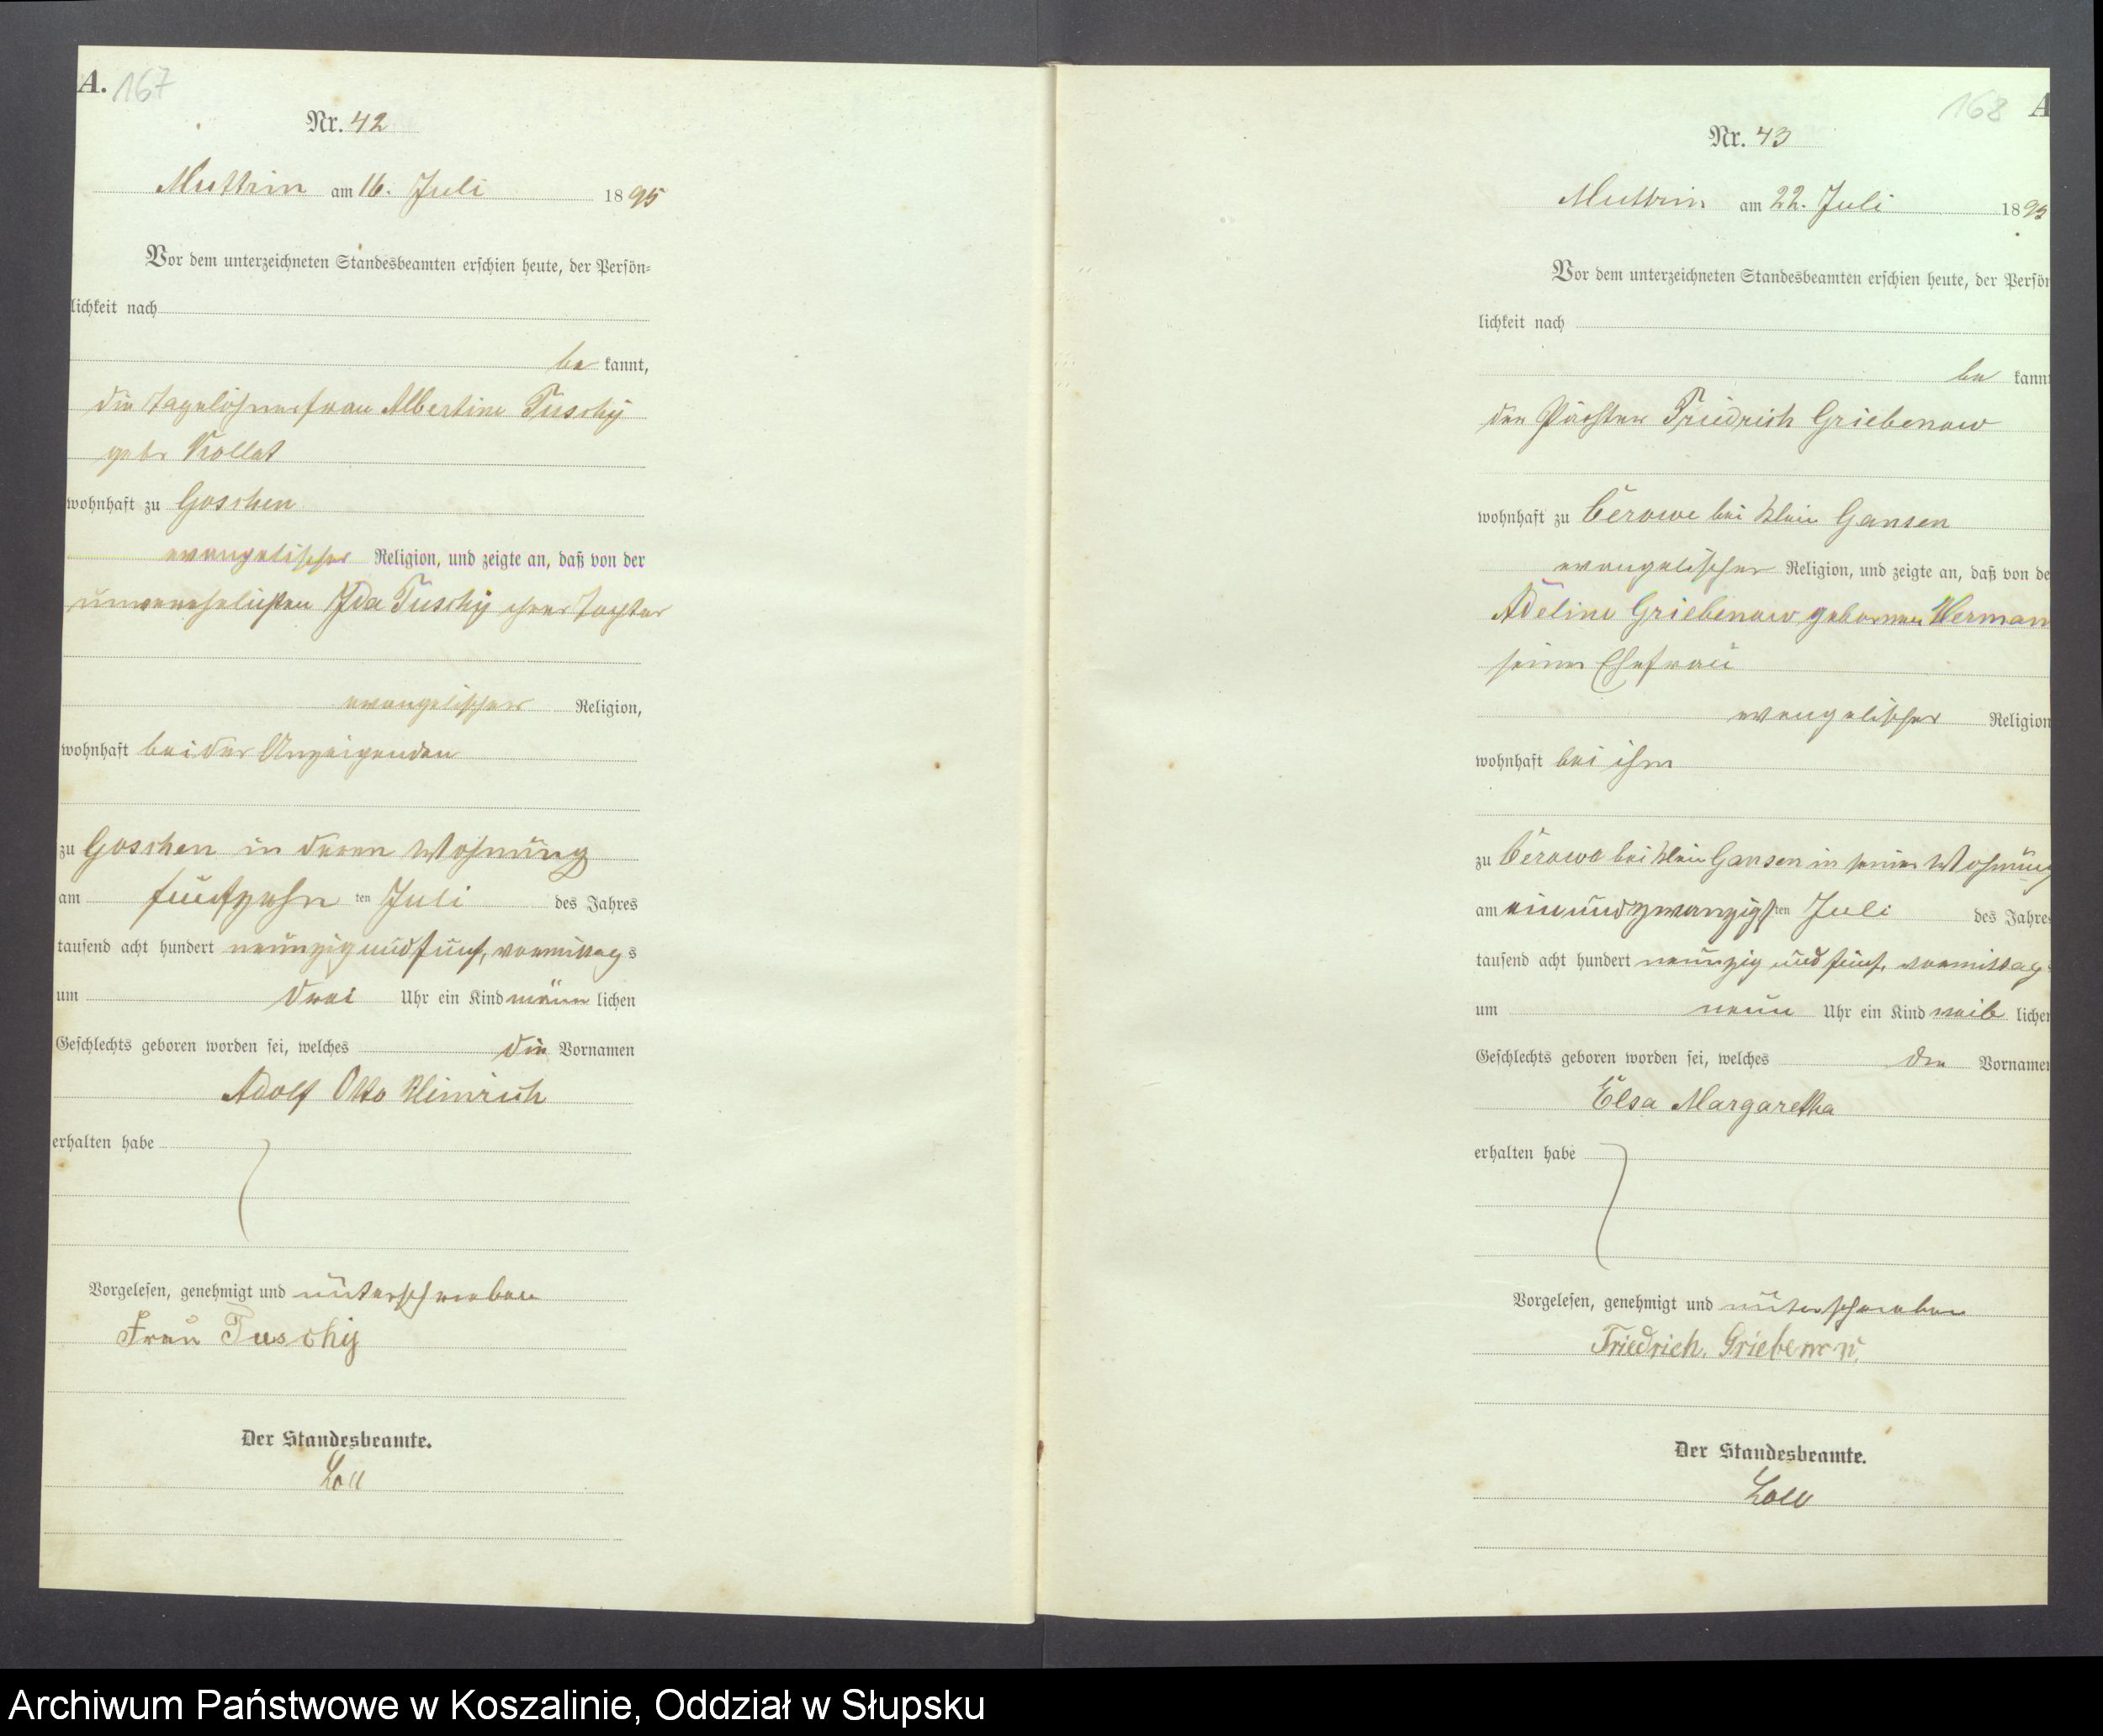 A. 167
Nr. 42
Muttrin am 16. Juli 1895
Vor dem unterzeichneten Standesbeamten erschien heute, der Persön-
lichkeit nach
be kannt,
die Tagelöhnerfrau Albertine Tuschy
geb. Kollat
wohnhaft zu Goschen
evangelischer Religion, und zeigte an, daß von der
unverehelichten Ida Tuschy ihrer Tochter
evangelischer Religion,
wohnhaft bei der Anzeigenden
zu Goschen in deren Wohnung
am fünfzehn ten Juli des Jahres
tausend acht hundert neunzig und fünf, vormittag s
um drei Uhr ein Kind männ lichen
Geschlechts geboren worden sei, welches die Vornamen
Adolf Otto Heinrich
erhalten habe
Vorgelesen, genehmigt und unterschrieben
Frau Tuschy
Der Standesbeamte.
Loll
168 A
Nr. 43
Muttrin am 22. Juli 1895
Vor dem unterzeichneten Standesbeamten erschien heute, der Persön
lichkeit nach
be kannt
der Pächter Friedrich Griebenow
wohnhaft zu Cerowe bei Klein Gansen
evangelischer Religion, und zeigte an, daß von de
Adeline Griebenow geborenen Herman
seiner Ehefrau
evangelischer Religion
wohnhaft bei ihm
zu Cerowe bei Klein Gansen in seiner Wohnung
am einundzwanzigsten Juli des Jahre
tausend acht hundert neunzig und fünf, vormittag
um neun Uhr ein Kind weib licher
Geschlechts geboren worden sei, welches die Vornamen
Elsa Margaretha
erhalten habe
Vorgelesen, genehmigt und unterschrieben
Friedrich. Griebenow.
Der Standesbeamte.
Loll
Archiwum Państwowe w Koszalinie, Oddział w Słupsku